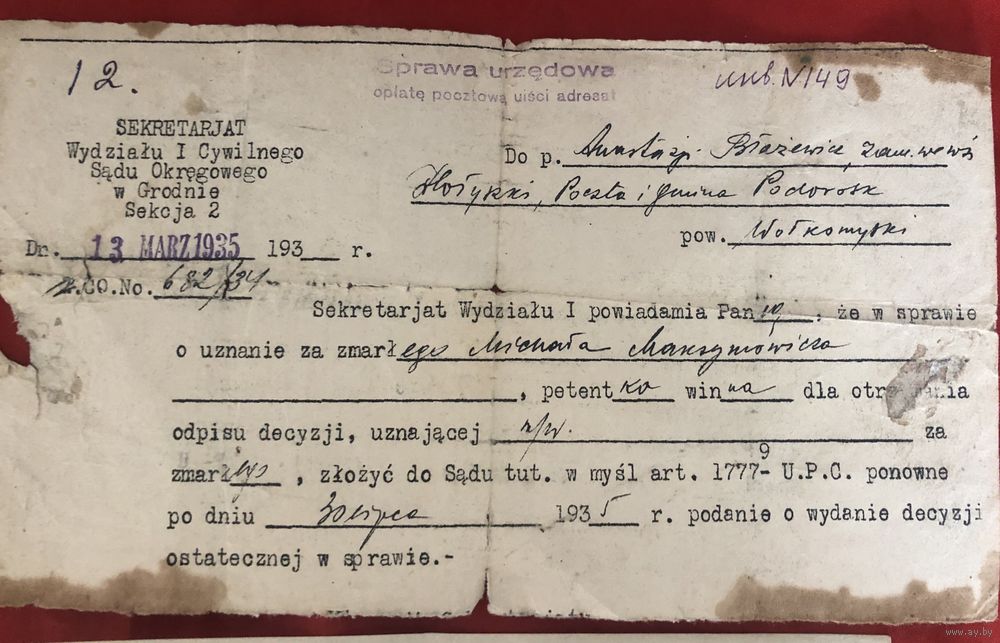 12.
Sprawa urzędowa
opłatę pocztową uiści adresat
инв. N149
SEKRETARJAT
Wydziału I Cywilnego
Sądu Okręgowego
w Grodnie
Sekcja 2
Dn. 13 MARZ 1935 193 r.
Z.CO.No. 682/34
Do p. Anastazji Błażewicz, zam. we wsi
Hołynki, Poczta i gmina Podorosk
pow. Wołkowyski
Sekretarjat Wydziału I powiadamia Panią, że w sprawie
o uznanie za zmarłego Michała Maksymowicza
, petentka winna dla otrzymania
odpisu decyzji, uznającej n/w. za
zmarłego, złożyć do Sądu tut. w myśl art. 1777-9 U.P.C. ponowne
po dniu lipca 1935 r. podanie o wydanie decyzji
ostatecznej w sprawie.-
www.ay.by